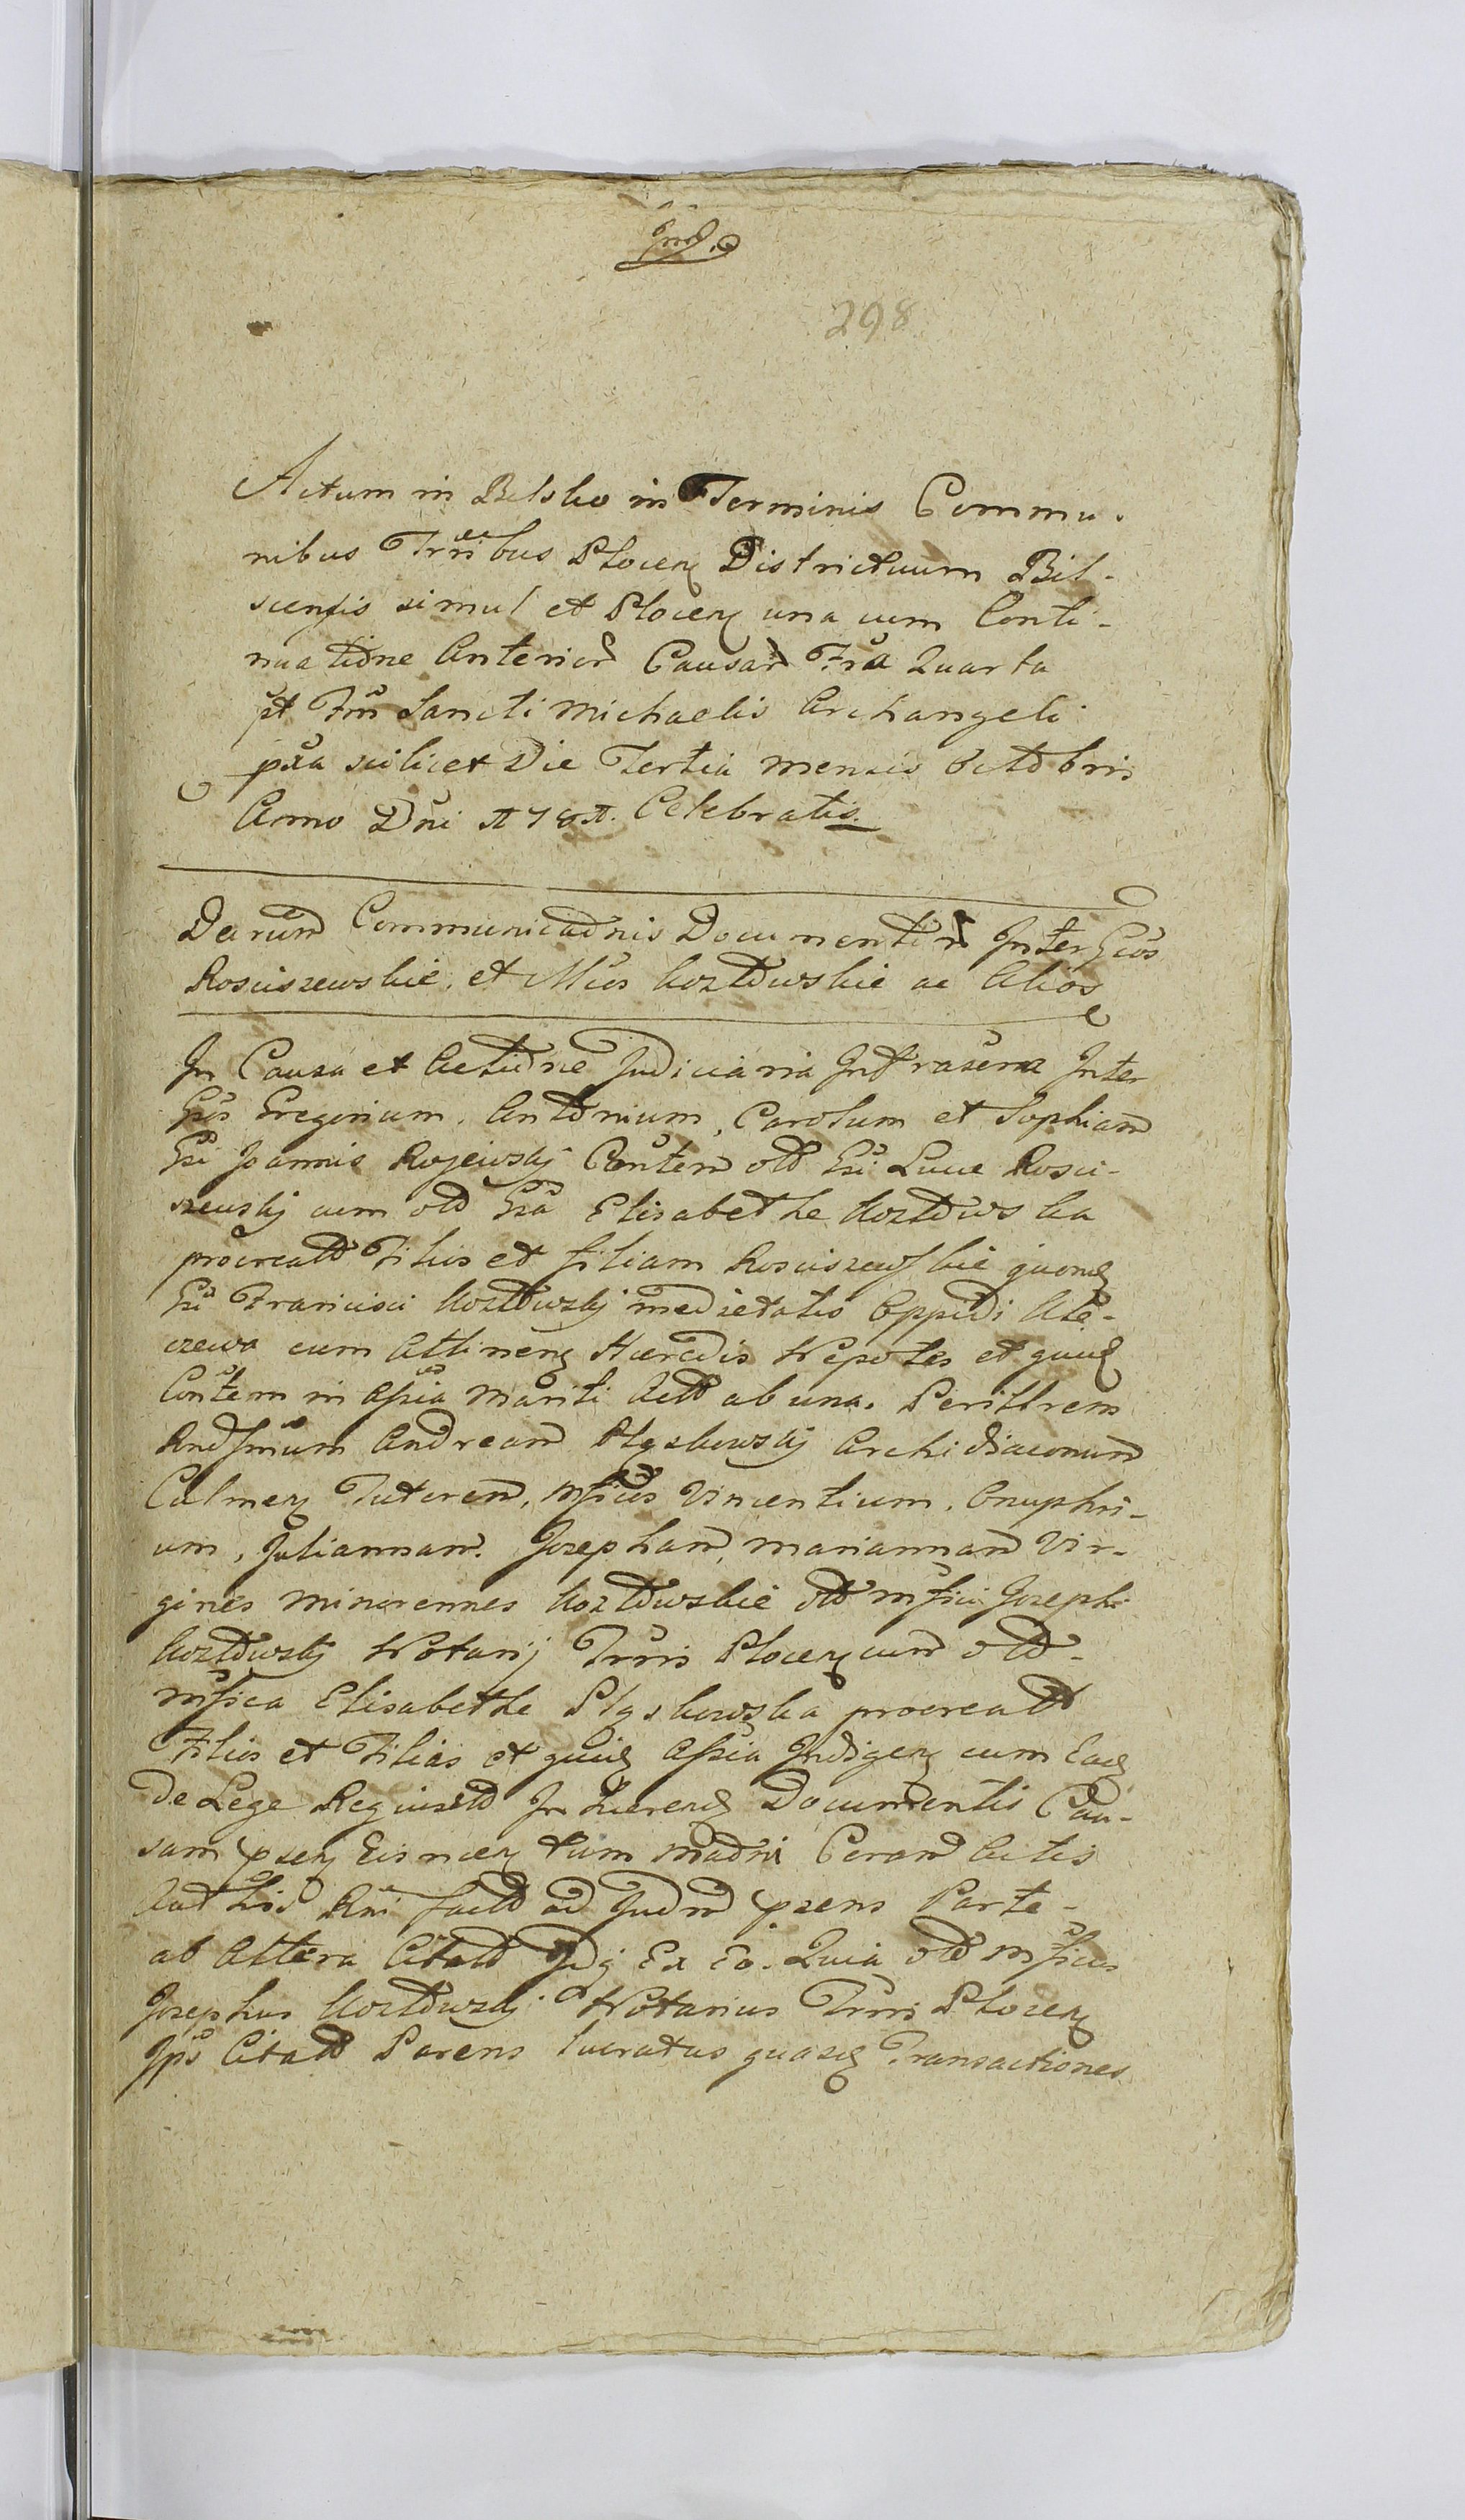 298
Actum in Belsko in Terminis Commu-
nibus Trribus Plocen Districtuum Bil-
scensis simul et Plocen una cum Conti-
nuatiõne Anterior Causar Fra Quarta
pt Ftm Sancti Michaelis Archangeli
pxa scilicet Die Tertia mensis Octobris
Anno Dni 1781. Celebratis.
Decretum Communicaõnis Documentor Inter Gsos
Rosciszewskie et Mcos Kozłowskie ac Alios
In Causa et Actiõne Judiciaria Infrascrta Inter
Gsos Gregorium, Antonium, Carolum et Sophiam
Gsi Joannis Rojewskj Contem olt Gsi Luce Rosci-
szewskj cum olt Gsa Elisabethe Kozłowska
procreatt Filios et filiam Rosciszewskie quond
Gsi Francisci Kozłowskj medietatis Oppidi
czewo cum Attinen Hæredis Nepotes et quid
Contem in Assia Mariti Actt ab una. Perillrem
Rndssimum Andream Płąskowskj Archidiaconum
Culmen Tutorem, Mficos Vincentium, Onuphri-
um, Juliannam, Josepham, Mariannam Vir-
gines minorennes Kozłowskie olt Mfici Josephi
Kozłowskj Notarij Trris Plocen cum olt
Mfica Elisabethe Płąskowska procreatt
Filios et Filias et quid Assia Indigen cum Ead
De Lege Regni Inhæren Documentis Cau-
sam psen Eisncen tum Coram Actis
Auth Rni factt ad Judm psens Parte
ab Altera Citatt Idq Ex Eo. Quia olt Mficus
Josephus Kozłowskj Notarius Trris Plocen
Ips Citatt Parens lucratus quasd Transactiones